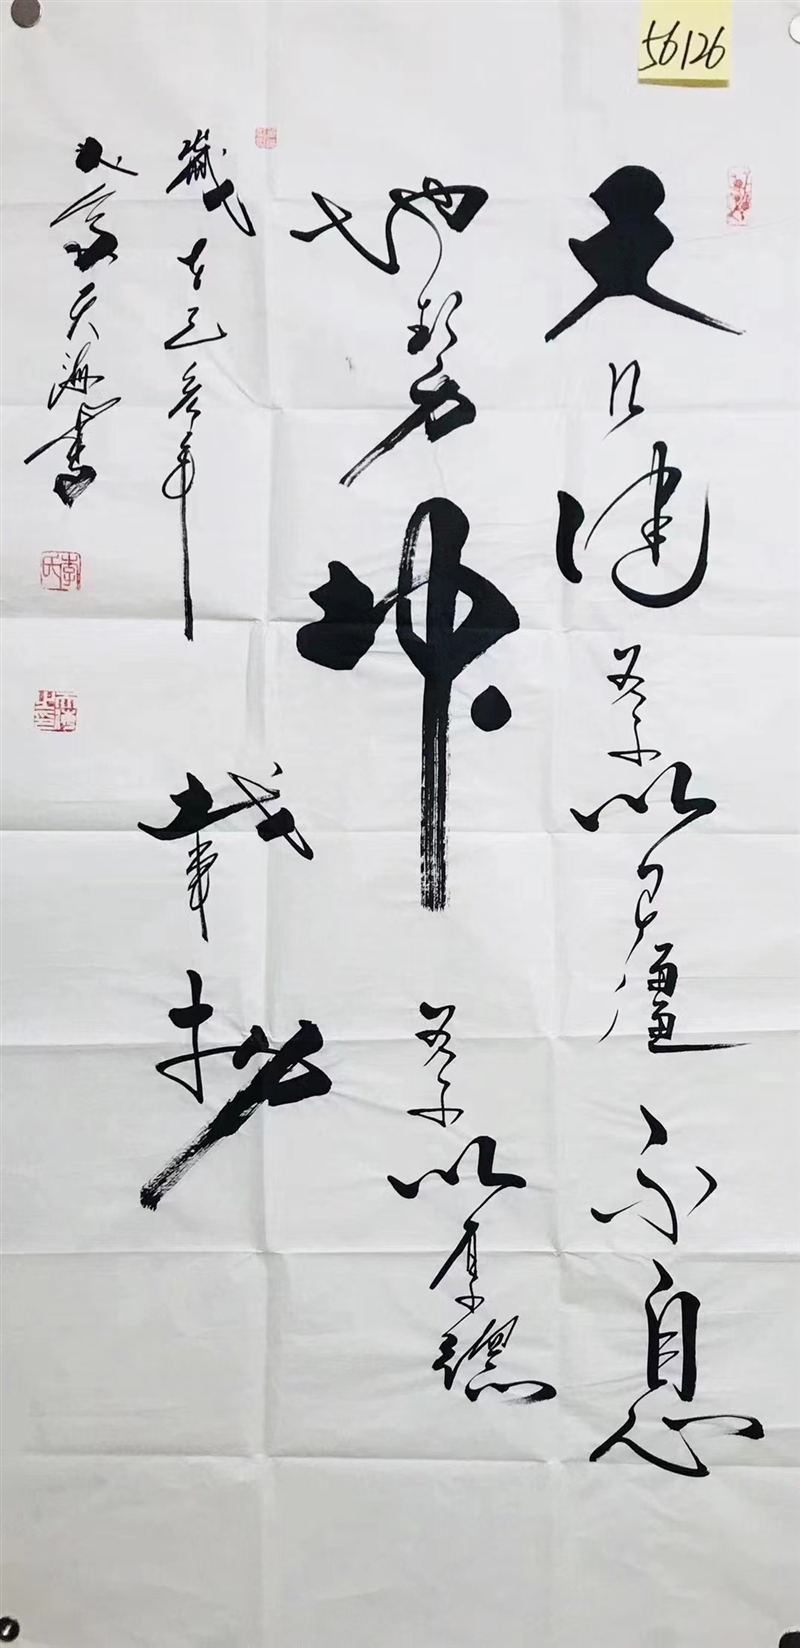 56126
天行健君子以自彊不息
地勢坤君子以厚德
載物
歲在己亥年
天海書
李氏